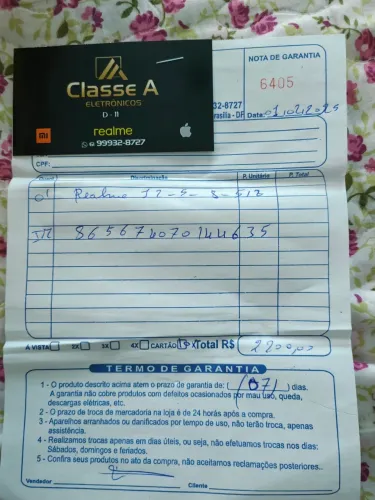 Classe A
ELETRÔNICOS
D - 11
mi
realme
99932-8727
NOTA DE GARANTIA
6405
32-8727
rasília - DF Data: 01/02/2025
CPF:
Quant. Discriminação P. Unitário P. Total
01 Realme 12 - 5 - 8 - 512
865674070144635
À VISTA 2X 3X 4X CARTÃO X Total R$ 2200,00
TERMO DE GARANTIA
1 - O produto descrito acima atem o prazo de garantia de: (07) dias.
A garantia não cobre produtos com defeitos ocasionados por mau uso, queda,
descargas elétricas, etc.
2 - O prazo de troca da mercadoria na loja é de 24 horas após a compra.
3 - Aparelhos arranhados ou danificados por tempo de uso, não terão troca, apenas
assistência.
4 - Realizamos trocas apenas em dias úteis, ou seja, não efetuamos trocas nos dias:
Sábados, domingos e feriados.
5 - Confira seus produtos no ato da compra, não aceitamos reclamações posteriores..
Vendedor Cliente